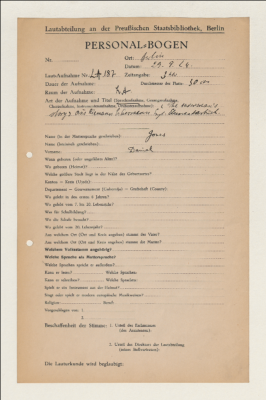 Lautabteilung an der Preußischen Staatsbibliothek, Berlin
PERSONAL-BOGEN
Nr. Ort: Berlin
Datum: 29.9.26.
Laut-Aufnahme Nr. LA 787 Zeitangabe:
Dauer der Aufnahme: Durchmesser der Platte: 30 cm
Raum der Aufnahme: LA
Art der Aufnahme und Titel
Name (in der Muttersprache geschrieben): Jones
Name (lateinisch geschrieben):
Vorname: Daniel
Wann geboren (oder ungefähres Alter)?
Wo geboren (Heimat)?
Welche größere Stadt liegt in der Nähe des Geburtsortes?
Kanton — Kreis (Ujezd):
Department — Gouvernement (Gubernija) — Grafschaft (County):
Wo gelebt in den ersten 6 Jahren?
Wo gelebt vom 7. bis 20. Lebensjahr?
Was für Schulbildung?
Wo die Schule besucht?
Wo gelebt vom 20. Lebensjahr?
Aus welchem Ort (Ort und Kreis angeben) stammt der Vater?
Aus welchem Ort (Ort und Kreis angeben) stammt die Mutter?
Welchem Volksstamm angehörig?
Welche Sprache als Muttersprache?
Welche Sprachen spricht er außerdem?
Kann er lesen? Welche Sprachen:
Kann er schreiben? Welche Sprachen:
Spielt er ein Instrument aus der Heimat?
Singt oder spielt er modern europäische Musikweisen?
Religion: Beruf:
Vorgeschlagen von: 1.
2.
Beschaffenheit der Stimme: 1. Urteil des Fachmannes
(des Assistenten):
2. Urteil des Direktors der Lautabteilung
(seines Stellvertreters):
Die Lauturkunde wird beglaubigt: